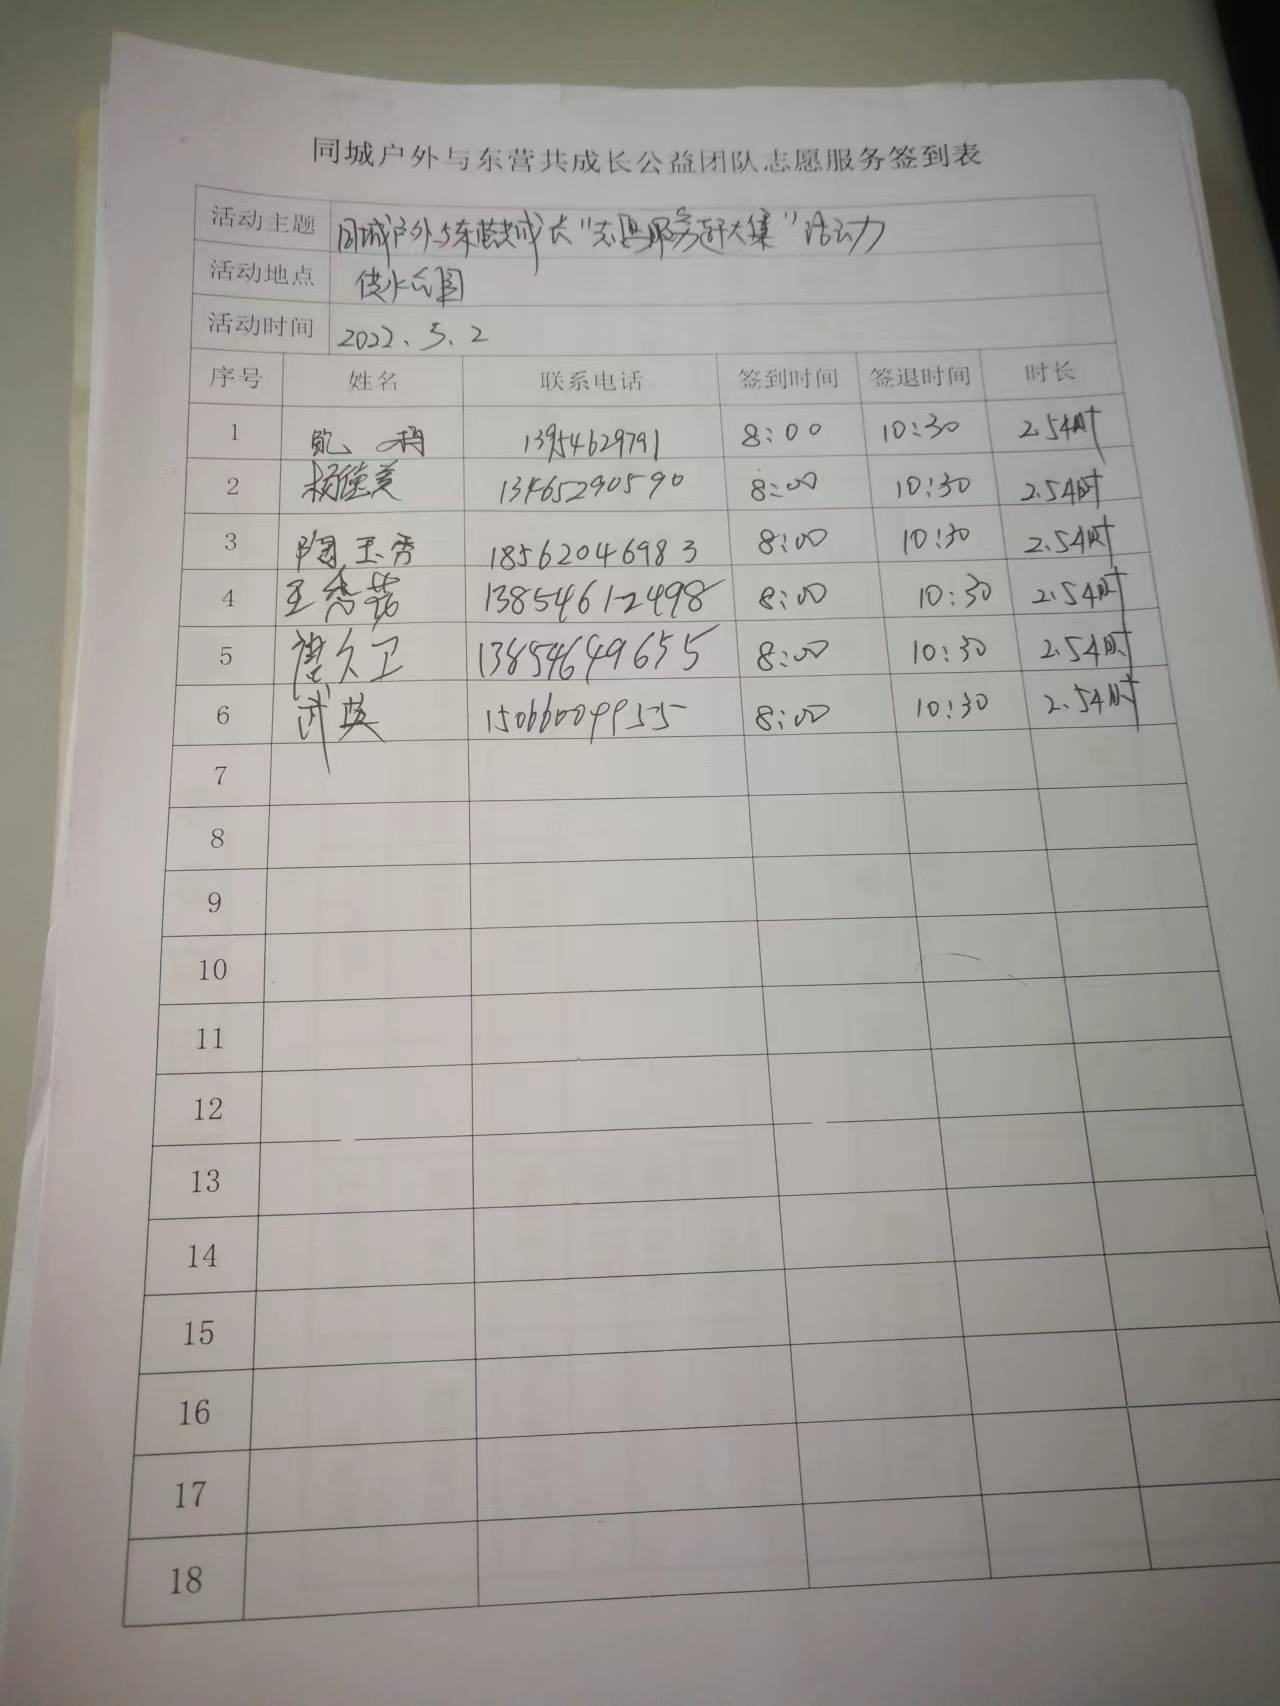 同城户外与东营共成长公益团队志愿服务签到表
活动主题 同城户外与东营共成长“志愿服务赶大集”活动
活动地点 供水公园
活动时间 2022.5.2
序号 姓名 联系电话 签到时间 签退时间 时长
1 13954629791 8:00 10:30 2.5小时
2 杨佳美 13465290590 8:00 10:30 2.5小时
3 陶玉秀 18562046983 8:00 10:30 2.5小时
4 王秀 13854612498 8:00 10:30 2.5小时
5 13854649655 8:00 10:30 2.5小时
6 武英 15066009955 8:00 10:30 2.5小时
7
8
9
10
11
12
13
14
15
16
17
18